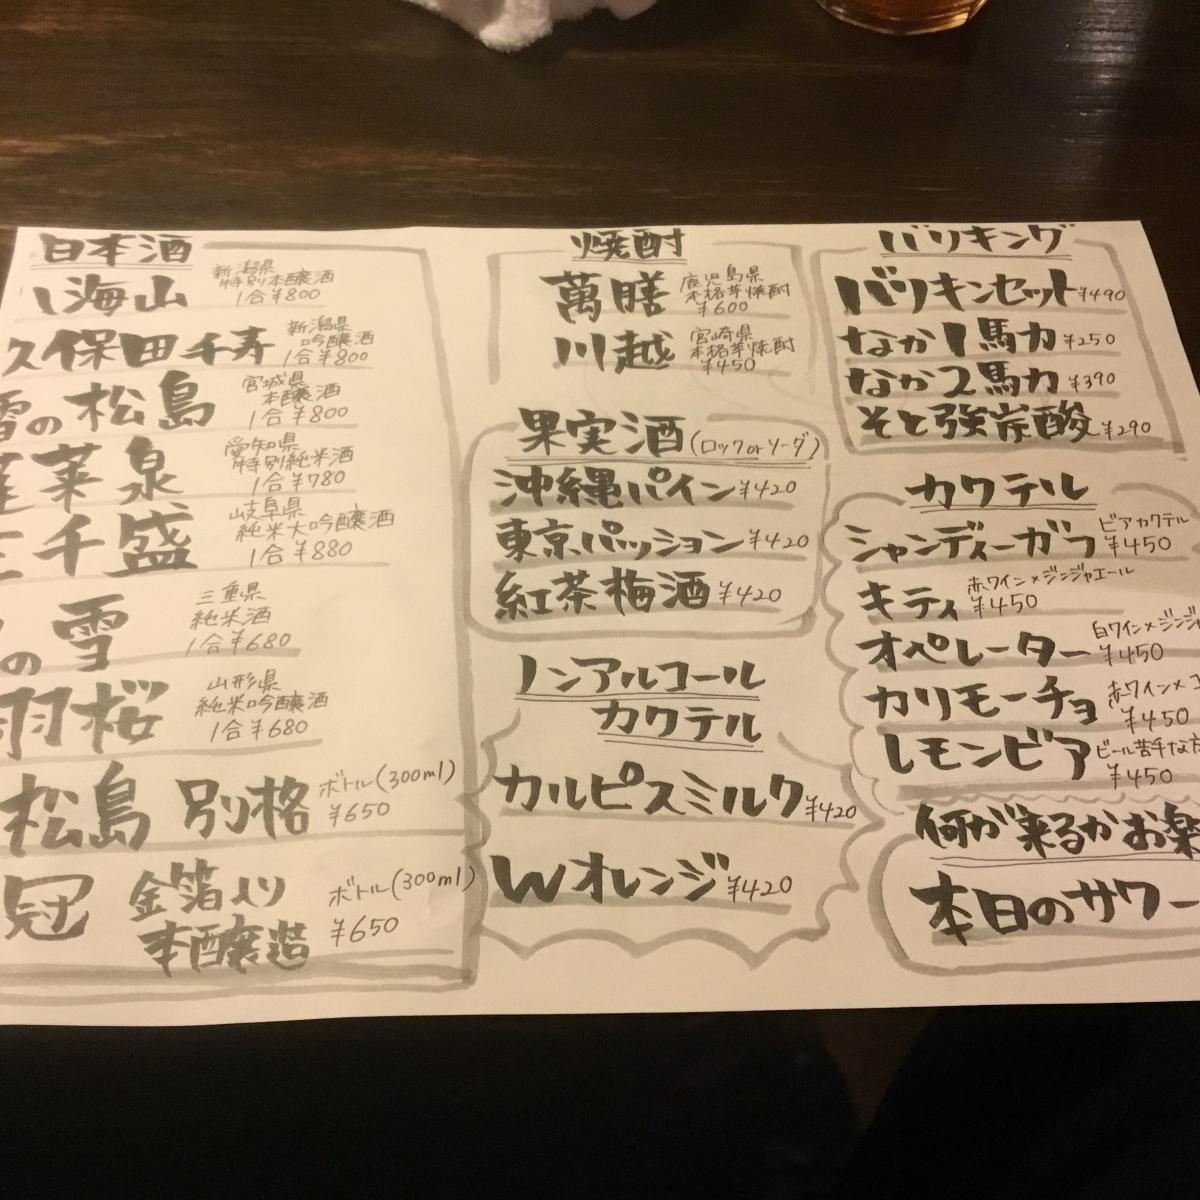 日本酒
海山
新潟県
特別本醸酒
1合¥800
久保田千寿
新潟県
吟醸酒
1合¥800
雪の松島
宮城県
本醸酒
1合¥800
莱泉
愛知県
特別純米酒
1合¥780
三千盛
岐阜県
純米大吟醸酒
1合¥880
の雪
三重県
純米酒
1合¥680
羽桜
山形県
純米吟醸酒
1合¥680
松島 別格
ボトル(300ml)
¥650
冠 金箔入り
本醸造
ボトル(300ml)
¥650
焼酎
萬膳
鹿児島県
本格芋焼酎
¥600
川越
宮崎県
本格芋焼酎
¥450
果実酒(ロックorソーダ)
沖縄パイン¥420
東京パッション¥420
紅茶梅酒¥420
ノンアルコール
カクテル
カルピスミルク¥420
Wオレンジ¥420
バリキング
バリキンセット¥490
なか1馬力¥250
なか2馬力¥390
そと強炭酸¥290
カクテル
シャンディーガフ
ビアカクテル
¥450
キティ
赤ワイン×ジンジャエール
¥450
オペレーター
白ワイン×ジンジャ
¥450
カリモーチョ
赤ワイン×コ
¥450
レモンビア
ビール苦手な方
¥450
何が来るかお楽
本日のサワー